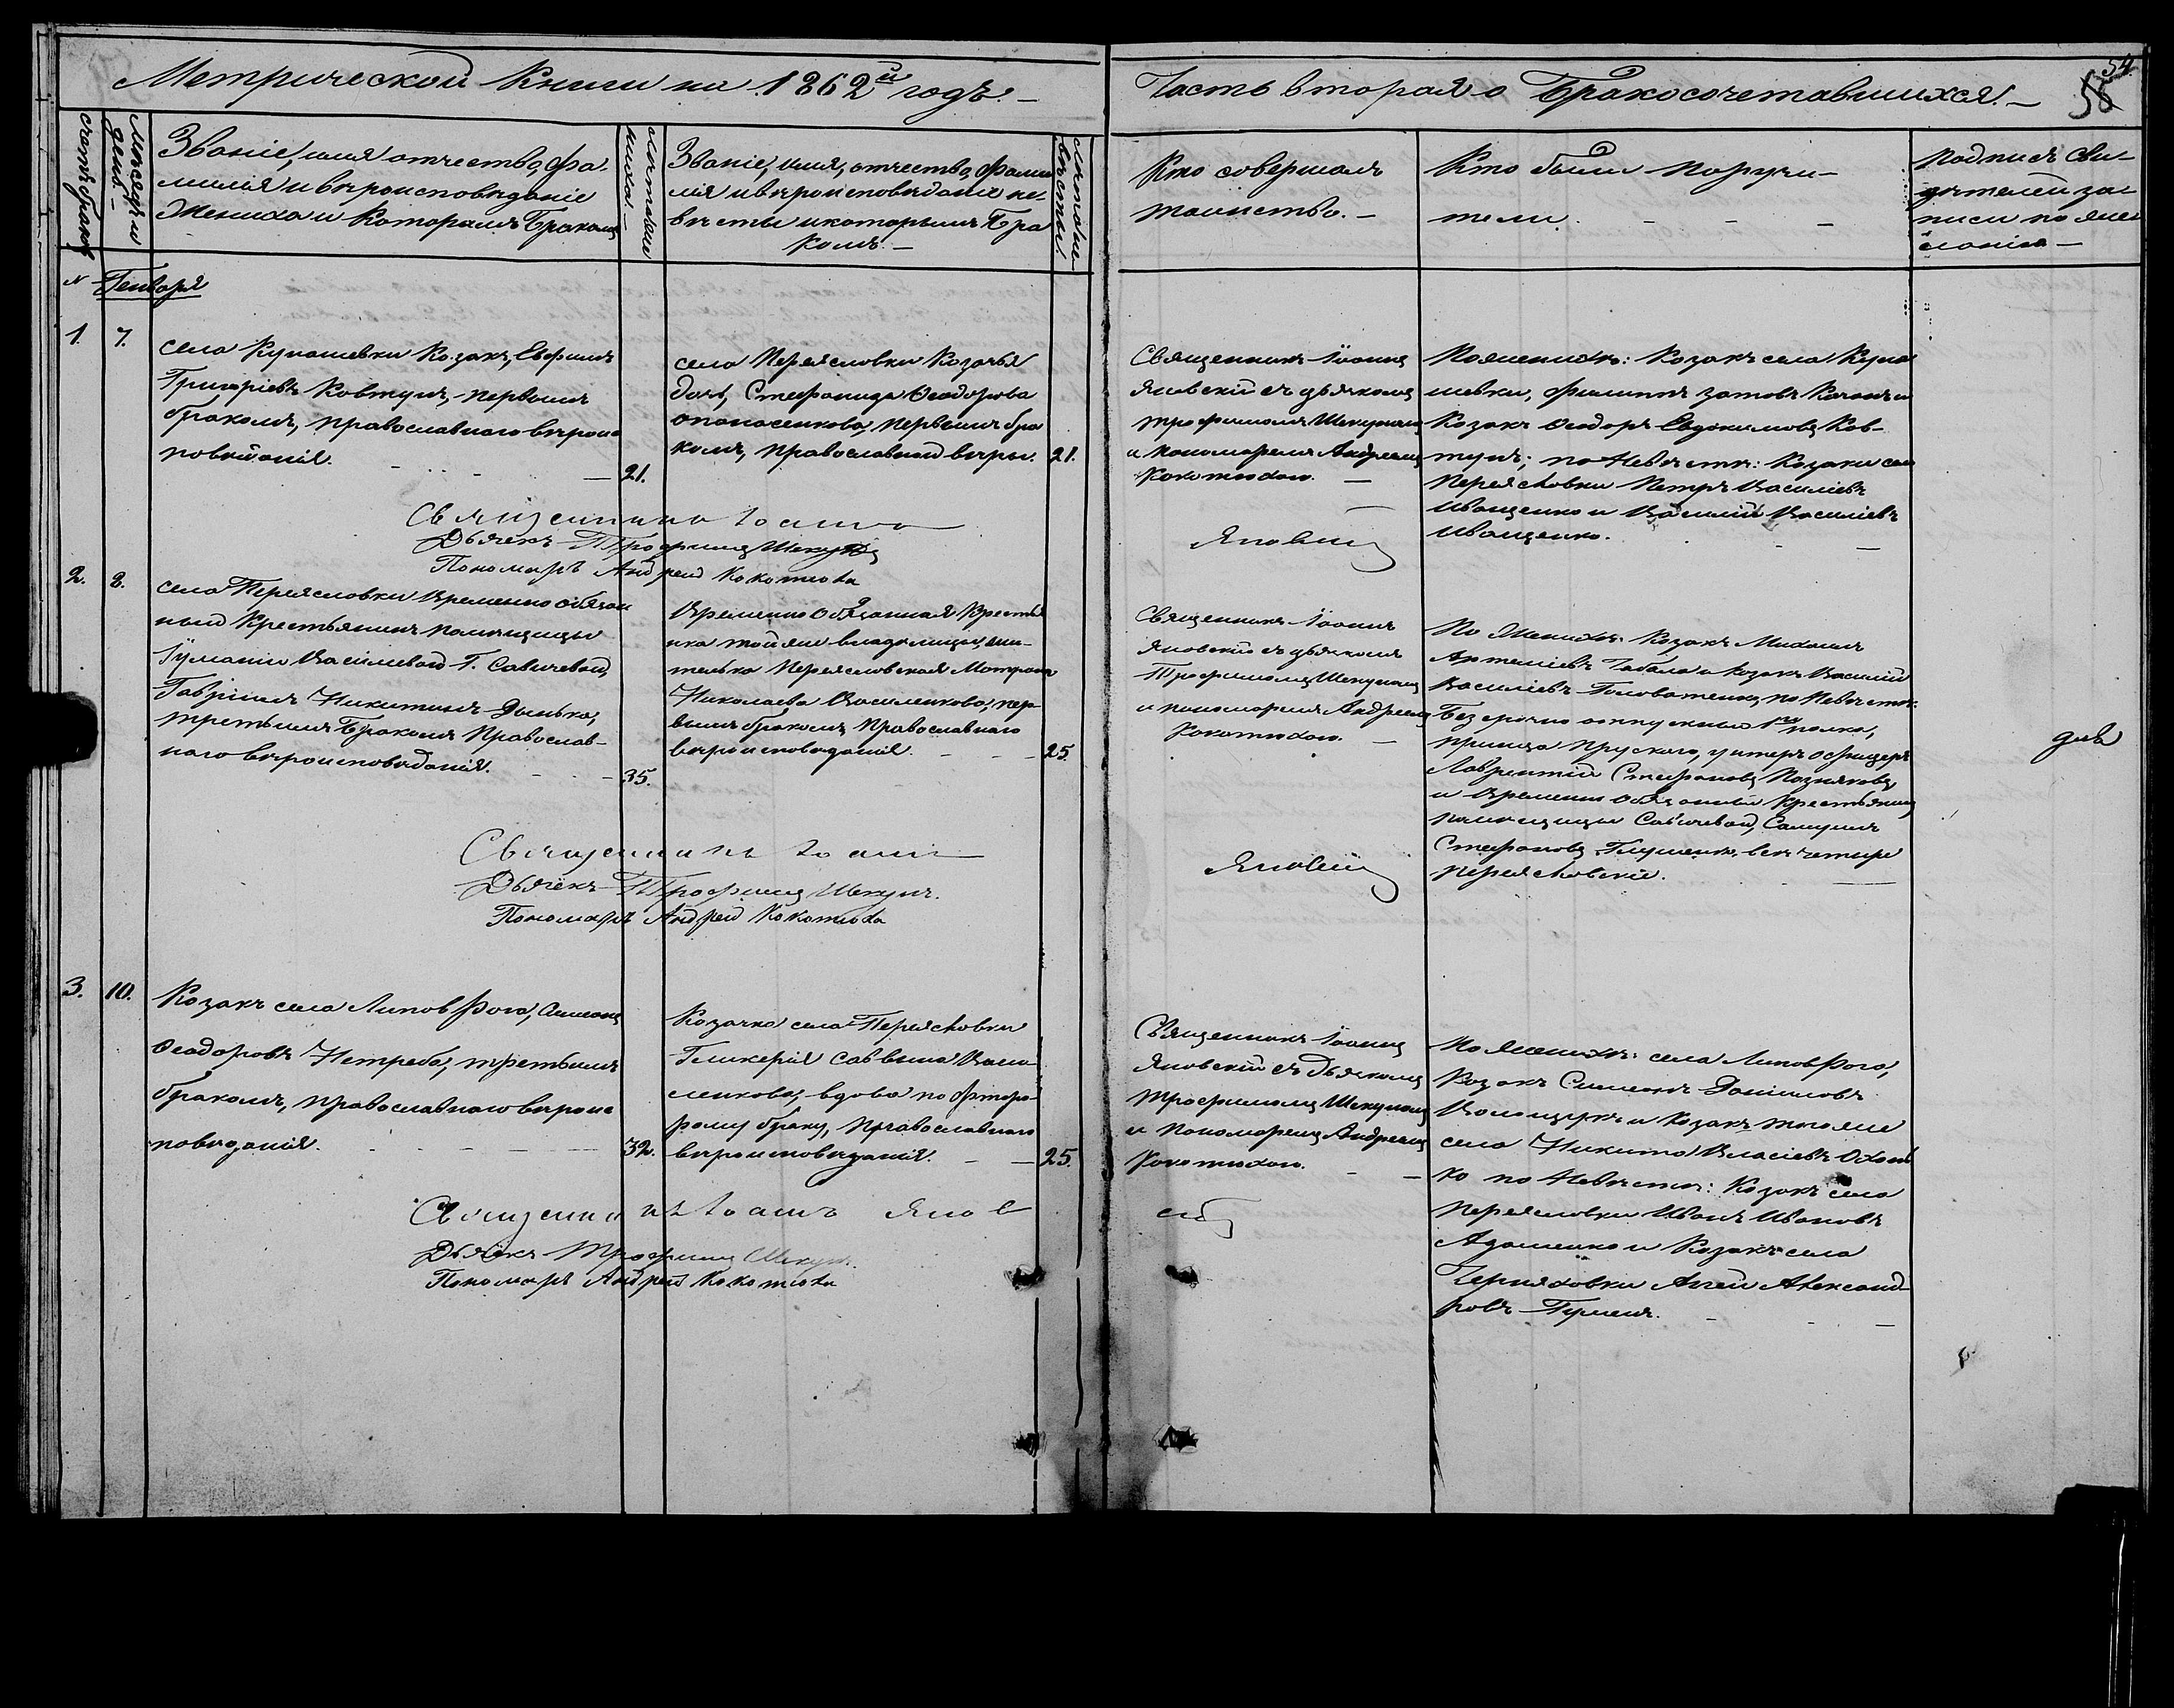 Метрической Книги на 1862й годъ.
Часть вторая о Бракосочетавшихся.
54
58
счетъ браковъ
Мѣсяцъ и день
Званіе, имя отчество, фа-
милія и вѣроисповѣданіе
Жениха и Которымъ Бракомъ
лѣта жениха
Званіе, имя, отчество, фами
лія и вѣроисповѣданіе не-
вѣсты и которымъ Бра
комъ.
лѣта невѣсты
Кто совершалъ
таинство.
Кто были Поручи-
тели.
Подпись Сви-
дѣтелей за-
писи по же-
ланію
№ Генваря
1. 7.
села Кунашевки Козакъ, Евфимъ
Григоріевъ Ковтунъ, первымъ
бракомъ, православнаго вѣроис
повѣданія.
21.
села Переясловки Козачья
дочь, Стефанида Ѳеодорова
Опанасенкова, первымъ бра
комъ, православной вѣры.
21.
Священникъ Іоаннъ
Яновскій съ дьячкомъ
Трофимомъ Шекуномъ
и пономаремъ Андреемъ
Кокотюхою.
По женихѣ: Козакъ села Куна
шевки, Филиппъ и
Козакъ Ѳеодоръ Евдокимовъ Ков-
тунъ; по Невѣстѣ: Козаки села
Переясловки Петръ Василіевъ
Иващенко и Василій Василіевъ
Иващенко.
Священникъ Іоаннъ
Яновскій
Дьячекъ Трофимъ Шекунъ
Пономарь Андрей Кокотюха
2. 8.
села Переясловки Временно обязан
ный Крестьянинъ помѣщицы
Іуліаніи Василіевой Г. Савичевой,
Гавріилъ Никитинъ Донька,
третьимъ Бракомъ Православ-
наго вѣроисповѣданія.
35.
Временно Обязанная Крестья
нка той же владѣлицы, жи-
телька Переясловская Мотрона
Николаева Василенкова, пер-
вымъ бракомъ Православнаго
вѣроисповѣданія.
25.
Священникъ Іоаннъ
Яновскій съ дьячкомъ
Трофимомъ Шекуномъ
и пономаремъ Андреемъ
Кокотюхою.
По Женихѣ: Козакъ Михаилъ
Артеміевъ и Козакъ Василій
Василіевъ Головатенко, по Невѣстѣ:
Безсрочно отпускной полка,
принца Прускаго, унтеръ офицеръ
Лаврентій Стефановъ Позняковъ,
и Временно Обязанный Крестьянинъ
помѣщицы Савичевой, Самуилъ
Стефановъ Глущенко, всѣ четыре
Переясловскіе.
Священникъ Іоаннъ
Яновскій
Дьячекъ Трофимъ Шекунъ.
Пономарь Андрей Кокотюха
3. 10.
Козакъ села Липов Рога, Симеонъ
Ѳеодоровъ Нетреба, третьимъ
бракомъ, православнаго вѣроис
повѣданія.
32.
Козачка села Переясловки
Гликерія Саввина Васи-
ленкова, вдова по
рому браку, Православнаго
вѣроисповѣданія.
25.
Священникъ Іоаннъ
Яновскій съ Дьячкомъ
Трофимомъ Шекуномъ
и Пономаремъ Андреемъ
Кокотюхою.
По женихѣ: села Липов Рога,
Козакъ Симеонъ Даніиловъ
и Козакъ того же
села Никита Власіевъ
ко по Невѣстѣ: Козакъ села
Переясловки Иванъ Ивановъ
Адаменко и Козакъ села
Черняховки Александ-
ровъ
Священникъ Іоаннъ Янов
скій
Дьячекъ Трофимъ Шекунъ.
Пономарь Андрей Кокотюха